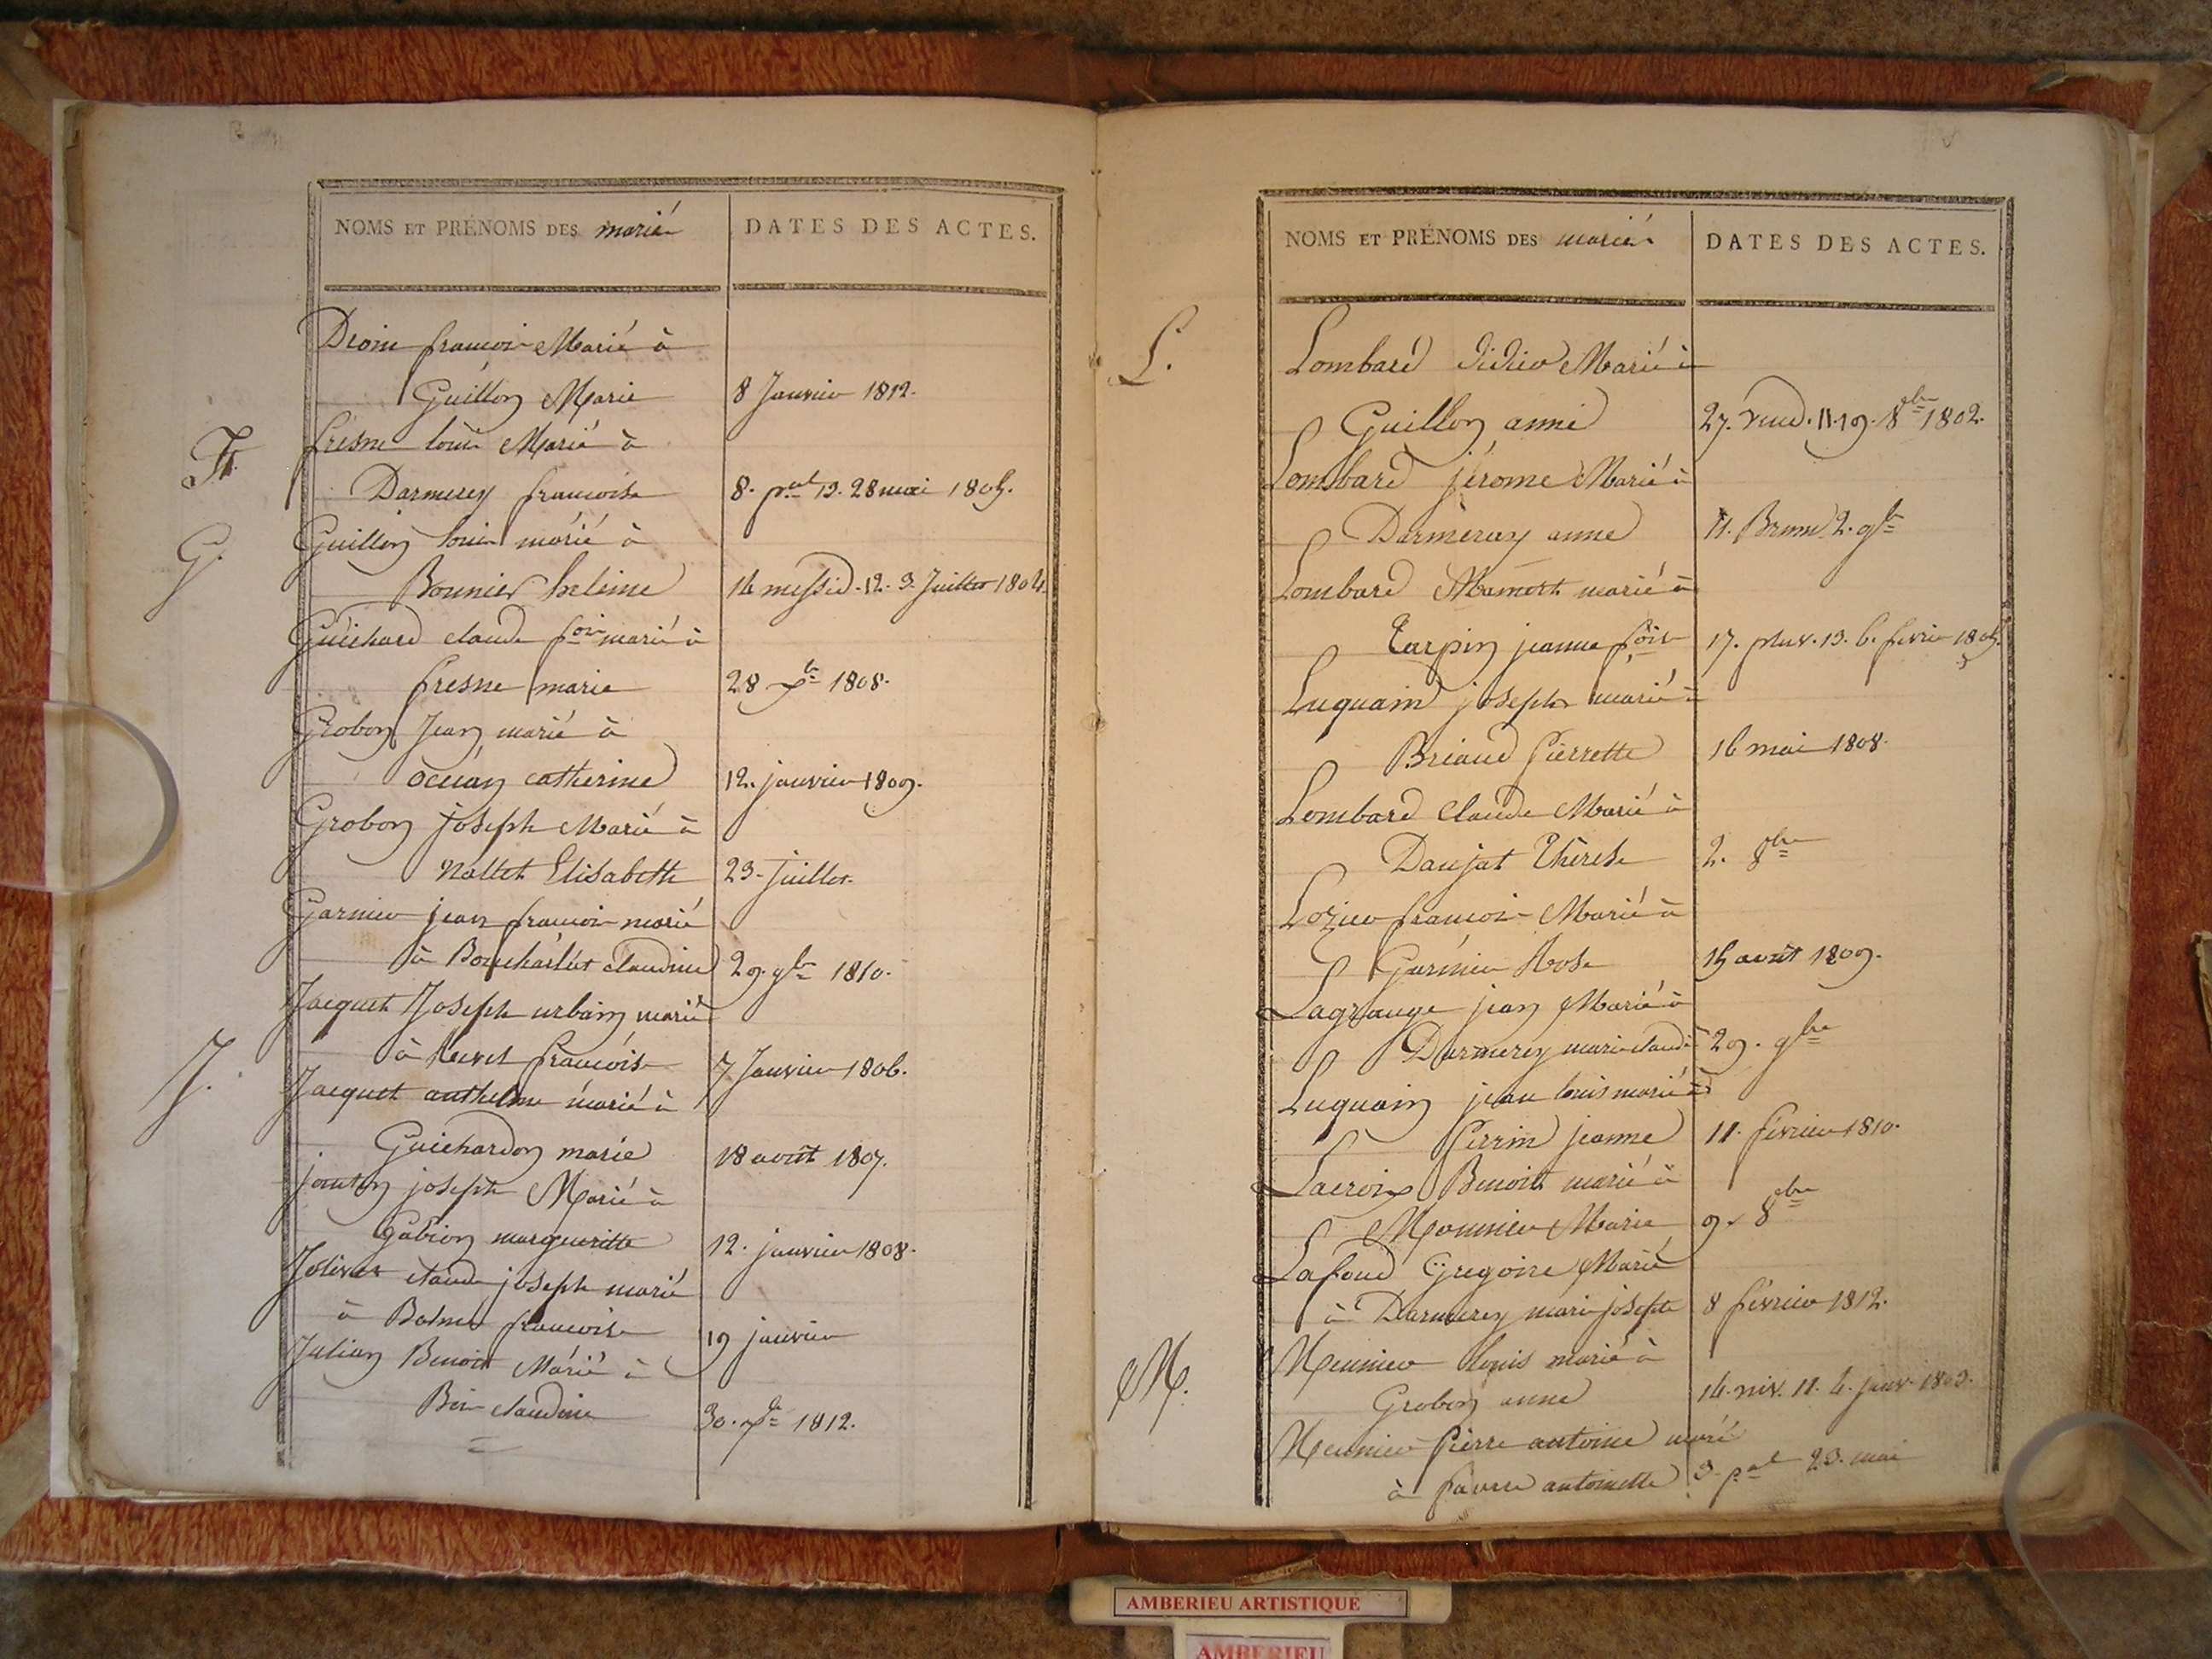 NOMS ET PRÉNOMS DES mariés
DATES DES ACTES.
Droin francois Marié à
Guillon Marie 8 Janvier 1812.
F.
fresne louis Marié à
Darmerey francoise 8. p.al 13. 28 mai 1805.
G.
Guillon louis marié à
Bonnier heleine 14 messid. 12. 3. Juillet 1804.
Guichard claude f.ois marié à
fresne marie 28 x.bre 1808.
Grobon Jean marié à
catherine 12. janvier 1809.
Grobon joseph Marié à
Nallet Elisabeth 23. juillet.
Garnier jean francois marié
à claudine 29. 9.bre 1810.
J.
Jacquet Joseph urbain marié
à francoise 7 Janvier 1806.
Jacquet anthelme marié à
Guichardon marie 18 août 1807.
joseph Marié à
Gabion marguerite 12. janvier 1808.
Jolivet claude joseph marié
à Balme francoise 19 janvier
Julian Benoit Marié à
claudine 30. x.bre 1812.
NOMS ET PRÉNOMS DES mariés
DATES DES ACTES.
L.
Lombard didier Marié à
Guillon anne 27. vend. 11. 19. 8bre 1802.
Lombard jérome Marié à
Darmeray anne 11. Brum. 2. 9bre
Lombard Mamert marié à
Tarpin jeanne f.oise 17. pluv. 13. 6. fevrier 1805.
Luquain joseph marié à
Briand Pierrette 16 mai 1808.
Lombard Claude Marié à
Daujat Thérese 2. 8bre
Lozier francois Marié à
Garnier Rose 15 août 1809.
Lagrange jean Marié à
Darmerey marie claud.e 29. 9bre
Luquain jean louis marié à
Perrin jeanne 11. février 1810.
Lacroix Benoit marié à
Mounier Marie 9. 8bre
Lafond Grégoire Marié
à Darmerey marie josephe 8 février 1812.
M.
Meunier louis marié à
Grobon anne 14. niv. 11. 4. janv. 1803.
Meunier Pierre antoine marié
à faurre antoinette 3. p.al 23. mai
AMBERIEU ARTISTIQUE
AMBERIEU